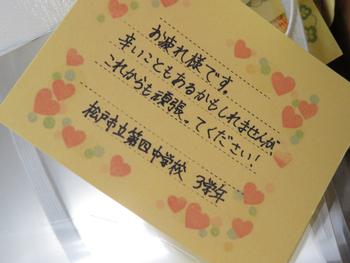 お疲れ様です。
辛いこともあるかもしれませんが、
これからも頑張ってください!
松戸市立第四中学校 3学年